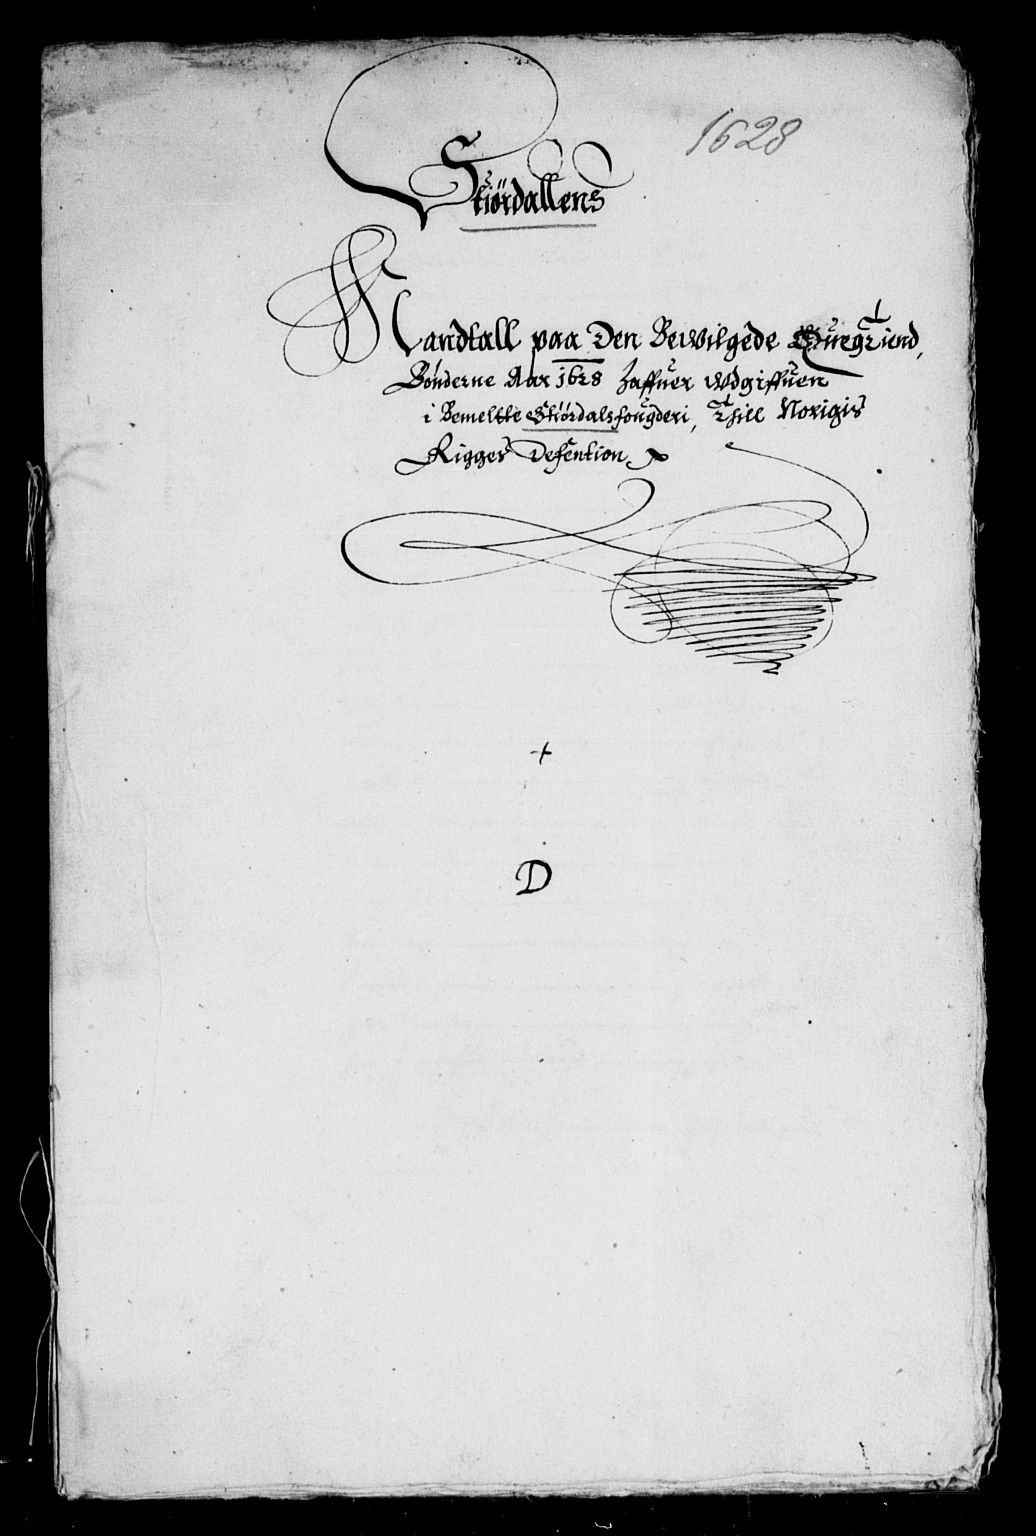 1628
Stiørdallens
Mandtall paa Den Bewilgede
Bønderne Aar 1628 haffuer wdgiffuen
i Bemelte Stiørdals fougderi, Thill Norigis
Rigges Defention
+
D